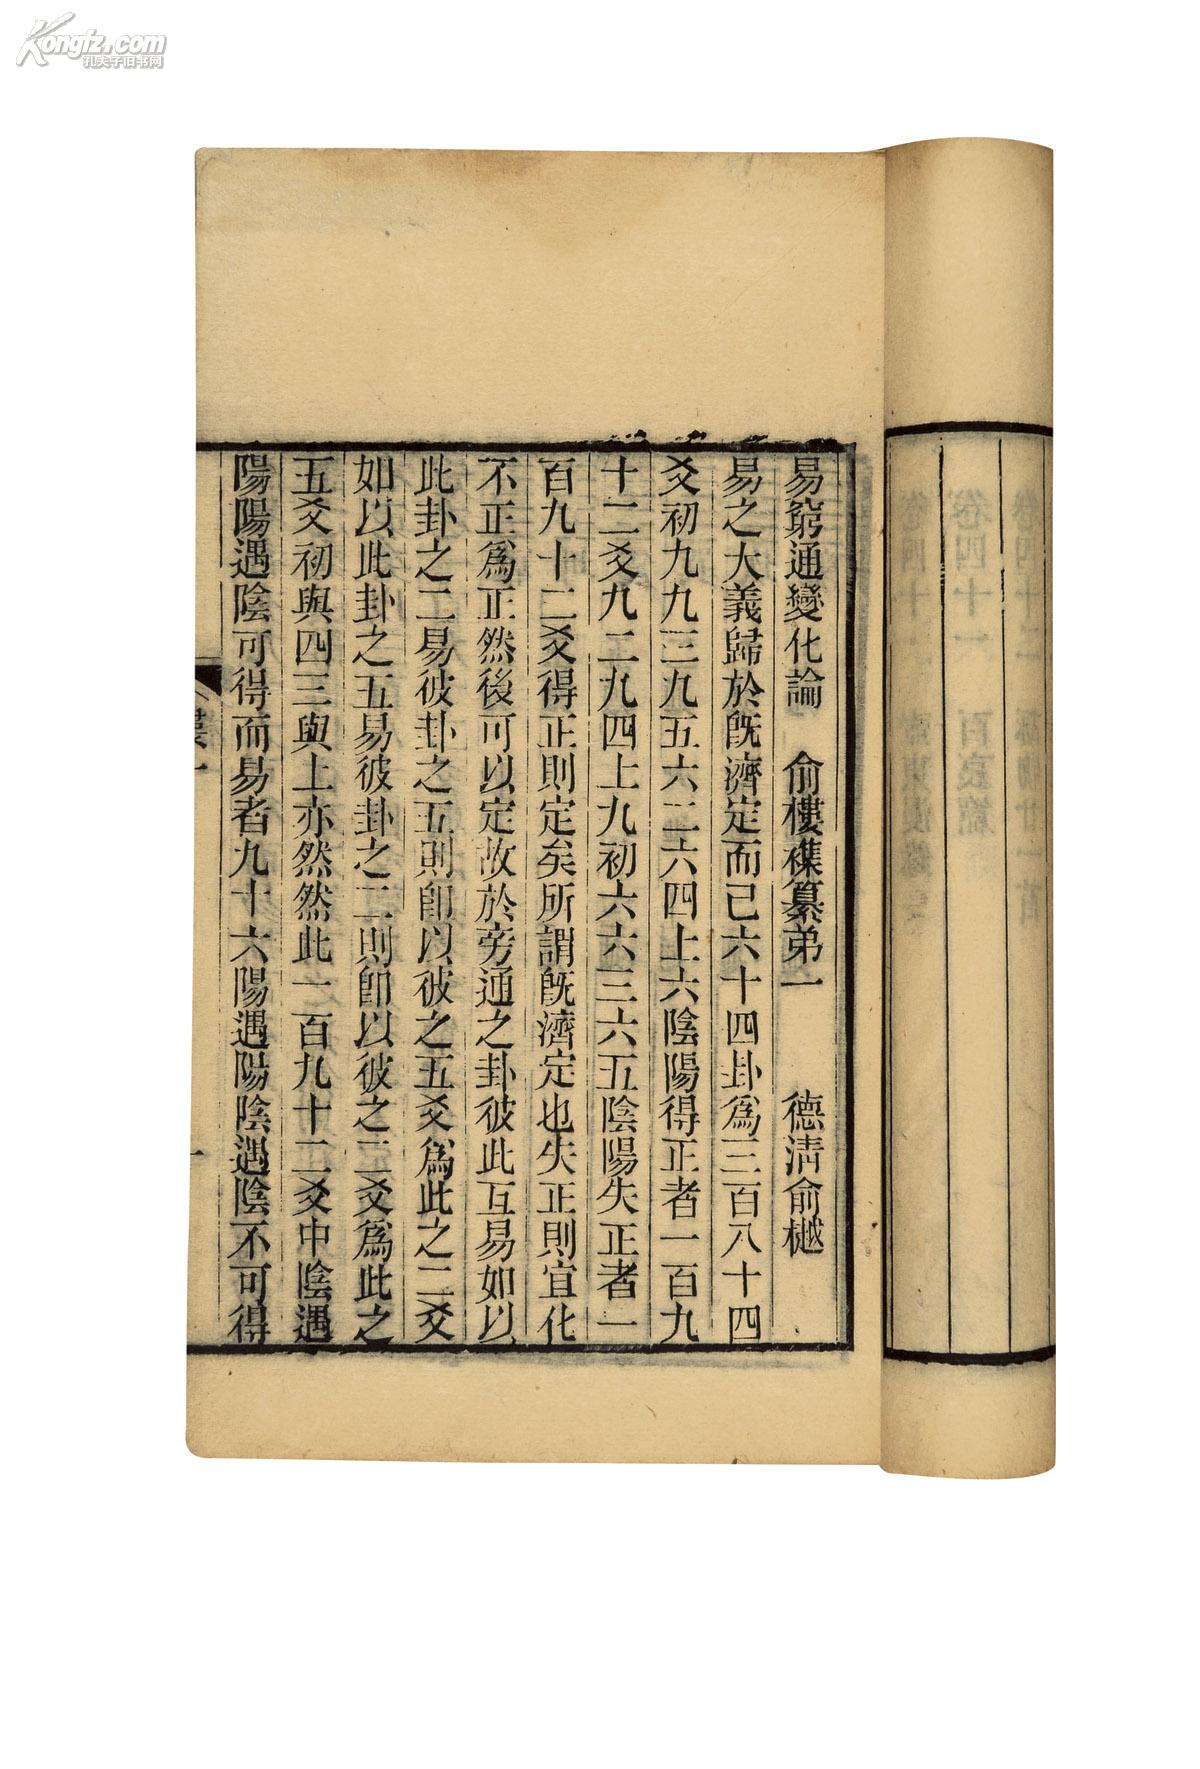 Kongfz.com
孔夫子旧书网
易窮通變化論　俞樓襍纂弟一　德淸俞樾
易之大義歸於旣濟定而已六十四卦爲三百八十四
爻初九九三九五六二六四上六陰陽得正者一百九
十二爻九二九四上九初六六三六五陰陽失正者一
百九十二爻得正則定矣所謂旣濟定也失正則宜化
不正爲正然後可以定故於旁通之卦彼此互易如以
此卦之二易彼卦之五則卽以彼之五爻爲此之二爻
如以此卦之五易彼卦之二則卽以彼之二爻爲此之
五爻初與四三與上亦然然此一百九十二爻中陰遇
陽陽遇陰可得而易者九十六陽遇陽陰遇陰不可得
一